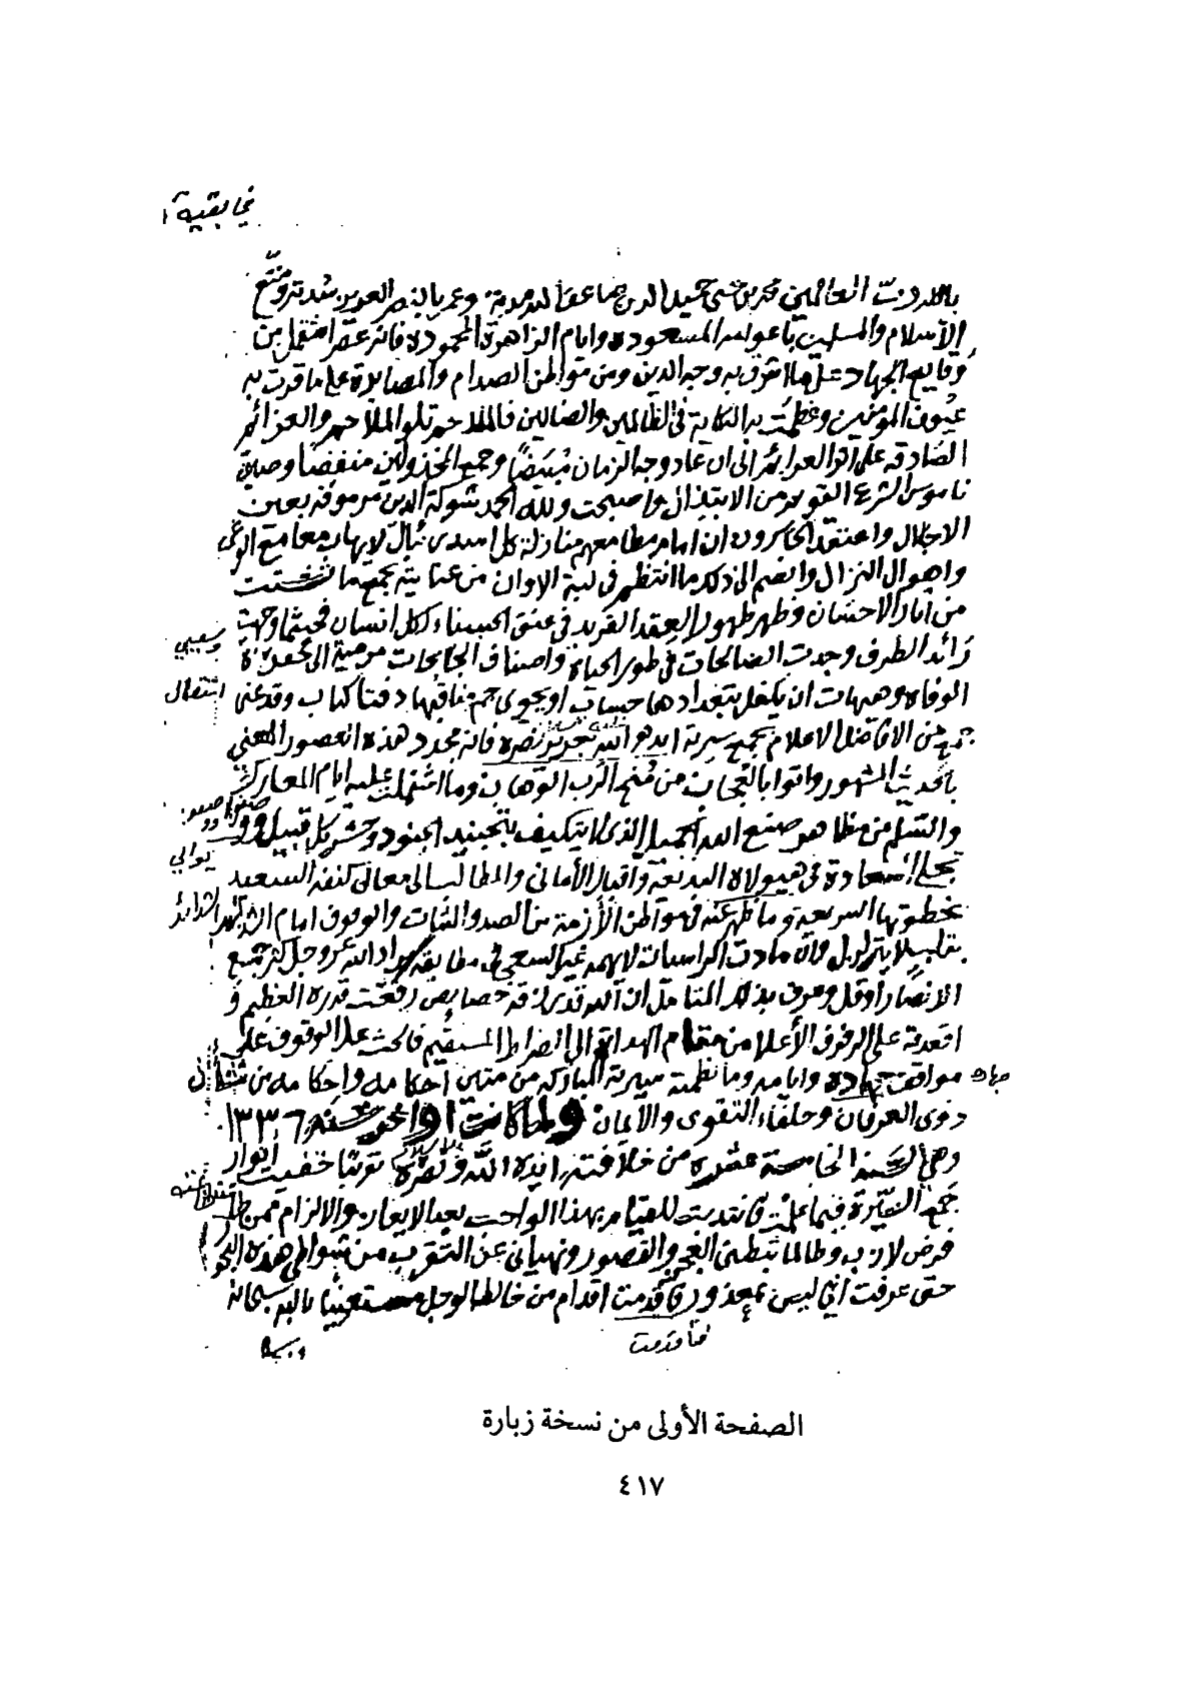 في بقية
بالله رب العالمين محمد بن يحيى حميد الدين وعمر بالنصر العزيز مدته ومتع
الاسلام والمسلمين باعوامه المسعوده وايام الزاهرة المحموده فانه عصر اشتمل من
وقايع الجهاد على ما اشرق به وجه الدين ومن مواطن الصدام والمصابرة على ما قرت به
عيون المؤمنين وعظمت به النكاية في الظالمين والضالين فالملاحم تلو الملاحم والعزائم
الصادقه على اثر العزائم الى ان عاد وجه الزمان مبيضا وجمع المخذولين منفضا وصين
ناموس الشرع القويم من الابتذال واصبحت ولله الحمد شوكة الدين مرموقه بعين
الاجلال واعتقد الماكرون ان امام مطامعهم منازلة كل اسد رئبال لا يهاب معامع الوغى
واهوال النزال وانضم الى ذلك ما انتظم في لبة الاوان من عنايته بجمع ما تشتت
من آثار الاحسان وظهر ظهور العقد الفريد في عنق الحسناء لكل انسان فحيثما وجهت
رائد الطرف وجدت الصالحات في طور الحياة واصناف الجائحات مرمية الى حفرة
الوفاه وهيهات ان يكفل بتعدادها حساب او يحوي جم مناقبها دفتا كتاب وقد عني
جمع من الافاضل الاعلام بجمع سيرته ايده الله فانه مجدد هذه العصور المعني
بالحديث المشهور واتوا بالعجاب من منح الرب الوهاب وما اشتملت عليه ايام المعارك
والسلم من مظاهر صنع الله الجميل الذي لا يتكيف بتجنيد الجنود وحشر كل قبيل
يوالي
تجلي السعادة في هيولاه البديعة واقبال الأماني والمطالب الى معالي كنفه السعيد
بخطوتها السريعه وما ظهر عنه في مواطن الأزمة من الصبر والثبات والوقوف امام الشدائد
بقلب لا يتزلزل وان مادت الراسيات لا يهمه غير السعي في مطابقة مراد الله عز وجل كثر جمع
الانصار او قل وعرف بذلك المتامل ان لله قدرا قد خصايص رفعت قدره العظيم و
اقعدته على الرفرف الأعلا من مقام الهداية الى الصراط المستقيم فالحث على الوقوف على
مواقف جهاده وايامه وما نظمته سيرته المباركه من متين احكامه واحكامه من شأن
ذوي العرفان وحلفاء التقوى والأيمان ولما كانت اواخر سنة ١٣٣٦
وهي السنة الخامسة عشره من خلافته ايده الله ونصره خفيت انوار
جمع السيرة فيما علمت فانتدبت للقيام بهذا الواجب بعد الايعاز والالزام ممن
فرض لازب وطالما ثبطني العجز والقصور ونهياني عن التقرب من شواطي هذه البحور
حتى عرفت اني ليس بمعذور فاقدمت اقدام من خالطه الوجل مستعينا بالله سبحانه
فأقدمت
الصفحة الأولى من نسخة زبارة
٤١٧